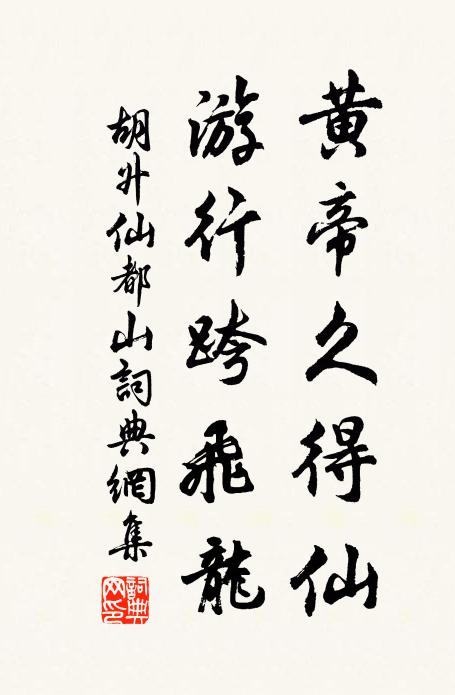 黄帝久得仙
游行跨飛龍
胡升仙都山詞典網集
詞典网印